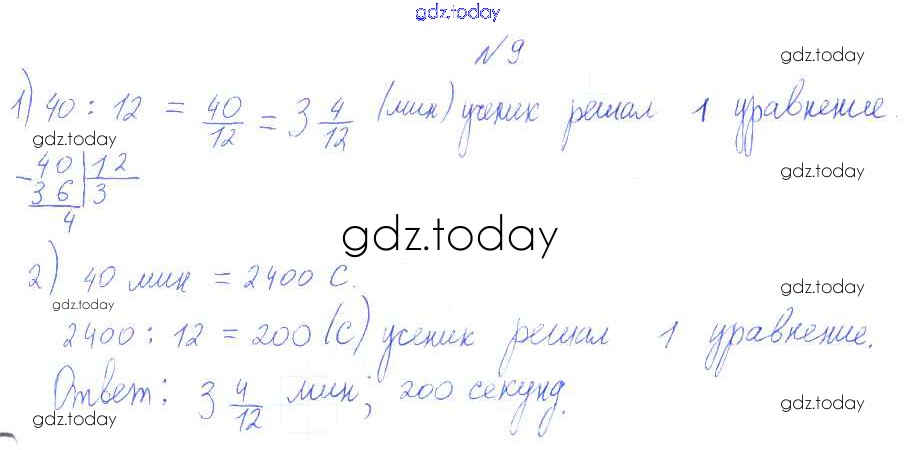 gdz.today
№ 9
gdz.today
1) 40 : 12 = 40/12 = 3 4/12 (мин) ученик решал 1 уравнение.
gdz.today
- 40 | 12
36 | 3
4
gdz.today
gdz.today
2) 40 мин = 2400 с.
gdz.today
gdz.today
2400 : 12 = 200 (с) ученик решал 1 уравнение.
Ответ: 3 4/12 мин; 200 секунд.
gdz.today
gdz.today